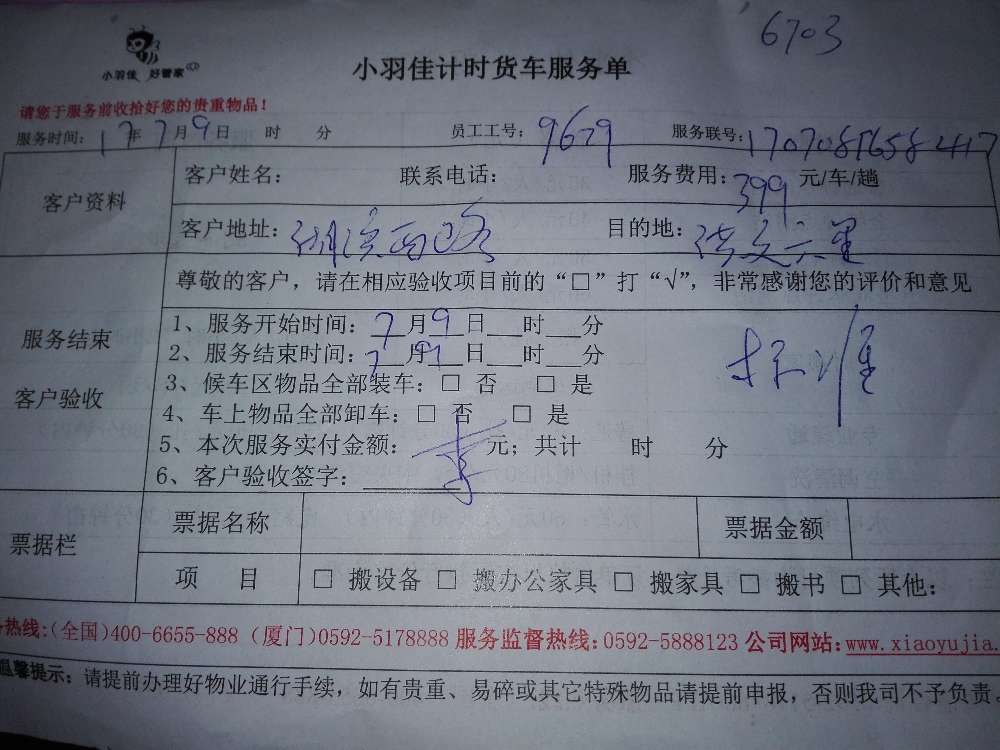 6703
小羽佳 好管家
小羽佳计时货车服务单
请您于服务前收拾好您的贵重物品！
服务时间：17年7月9日 时 分 员工工号：9679 服务联号：
客户资料
客户姓名： 联系电话： 服务费用：399 元/车/趟
客户地址：湖滨西路 目的地：
尊敬的客户，请在相应验收项目前的“□”打“√”，非常感谢您的评价和意见
服务结束
客户验收
1、服务开始时间：7月9日___时___分
2、服务结束时间：7月9日___时___分
3、候车区物品全部装车：□ 否 □ 是
4、车上物品全部卸车：□ 否 □ 是
5、本次服务实付金额： 元；共计 时 分
6、客户验收签字：李
标准
票据栏
票据名称 票据金额
项 目 □ 搬设备 □ 搬办公家具 □ 搬家具 □ 搬书 □ 其他：
热线：(全国)400-6655-888 (厦门)0592-5178888 服务监督热线：0592-5888123 公司网站：www.xiaoyujia.
温馨提示：请提前办理好物业通行手续，如有贵重、易碎或其它特殊物品请提前申报，否则我司不予负责。